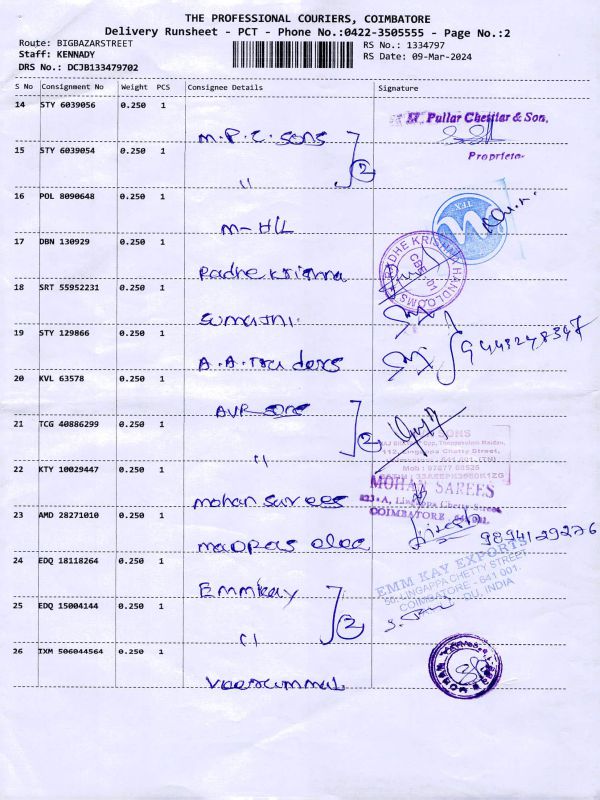 THE PROFESSIONAL COURIERS, COIMBATORE
Delivery Runsheet - PCT - Phone No.:0422-3505555 - Page No.:2
Route: BIGBAZARSTREET
RS No.: 1334797
Staff: KENNADY
RS Date: 09-Mar-2024
DRS No.: DCJB133479702
S No Consignment No Weight PCS Consignee Details Signature
14 STY 6039056 0.250 1
M. Pullar Chettiar & Son,
M.P.C. Sons
2
Proprietor
15 STY 6039054 0.250 1
"
16 POL 8090648 0.250 1
M-H/L
17 DBN 130929 0.250 1
RADHE KRISHNA HANDLOOMS
CBE-01
Radhe Krishna
18 SRT 55952231 0.250 1
19 STY 129866 0.250 1
9443248347
A.A. Traders
20 KVL 63578 0.250 1
AVR Sons
2
21 TCG 40886299 0.250 1
SONS
112, Lingappa Chetty Street,
- 641 001. (TN)
Mob : 97877 08525
"
22 KTY 10029447 0.250 1
MOHAN SAREES
823-A, Lingappa Chetty Street
COIMBATORE - 641 001.
Mohan Sarees
23 AMD 28271010 0.250 1
9894129276
Madras elec
24 EDQ 18118264 0.250 1
EMM KAY EXPORTS
LINGAPPA CHETTY STREET
COIMBATORE - 641 001
INDIA
Emmkay
2
25 EDQ 15004144 0.250 1
"
26 IXM 506044564 0.250 1